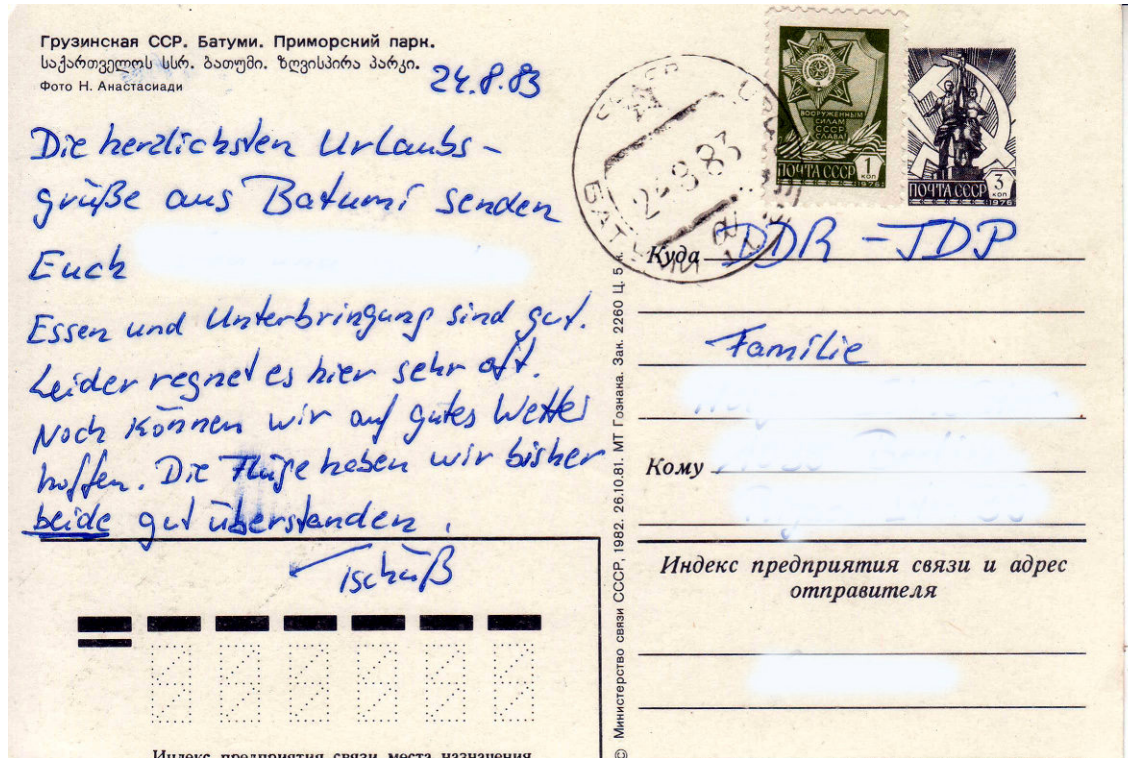 Грузинская ССР. Батуми. Приморский парк.
საქართველოს სსრ. ბათუმი. ზღვისპირა პარკი.
Фото Н. Анастасиади
24.8.83
Die herzlichsten Urlaubs-
grüße aus Batumi senden
Euch
Essen und Unterbringung sind gut.
Leider regnet es hier sehr oft.
Noch können wir auf gutes Wetter
hoffen. Die Flüge haben wir bisher
beide gut überstanden.
Tschüß
Индекс предприятия связи места назначения
© Министерство связи СССР, 1982. 26.10.81. МТ Гознака. Зак. 2260 Ц. 5 к.
БАТУМИ
8 83
ВООРУЖЕННЫМ
СИЛАМ
СССР
СЛАВА!
ПОЧТА СССР 1 коп
1976
ПОЧТА СССР 3 коп
1976
Куда DDR - JDP
Familie
Кому
Индекс предприятия связи и адрес
отправителя